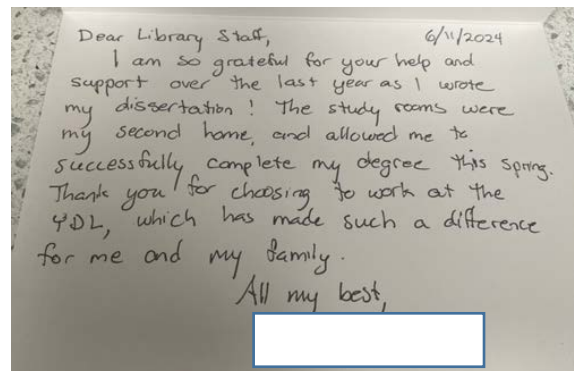 Dear Library Staff, 6/11/2024
I am so grateful for your help and
support over the last year as I wrote
my dissertation! The study rooms were
my second home, and allowed me to
successfully complete my degree this spring.
Thank you for choosing to work at the
YDL, which has made such a difference
for me and my family.
All my best,